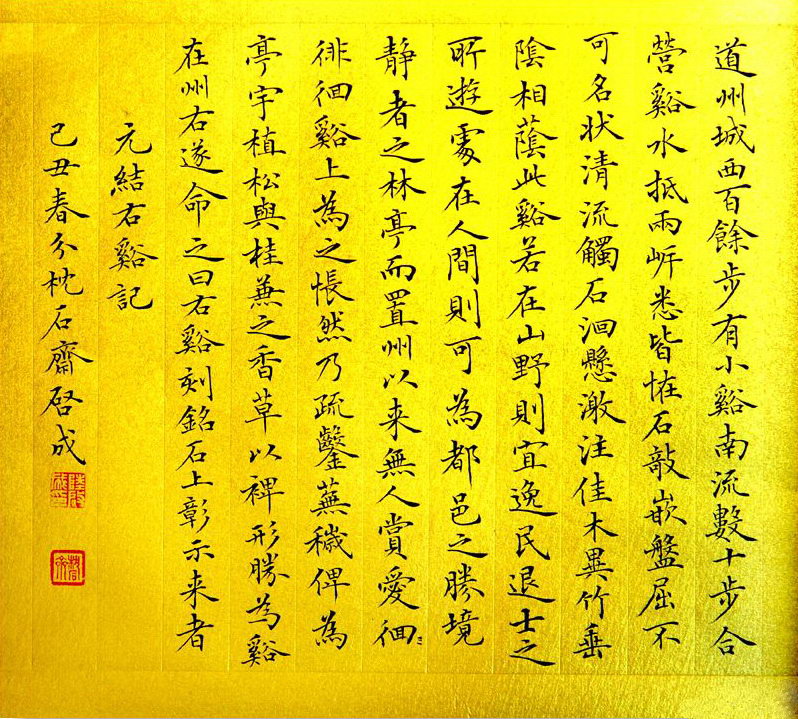 道州城西百餘步有小谿南流數十步合
營谿水抵兩岍悉皆恠石敲嵌盤屈不
可名状清流觸石洄懸激注佳木異竹垂
陰相蔭此谿若在山野則宜逸民退士之
所遊處在人間則可為都邑之勝境
静者之林亭而置州以来無人賞愛徊
徘徊谿上為之悵然乃疏鑿蕪穢俾為
亭宇植松與桂蒹之香草以裨形勝為谿
在州右遂命之曰右谿刻銘石上彰示来者
元結右谿記
己丑春分枕石齋啓成